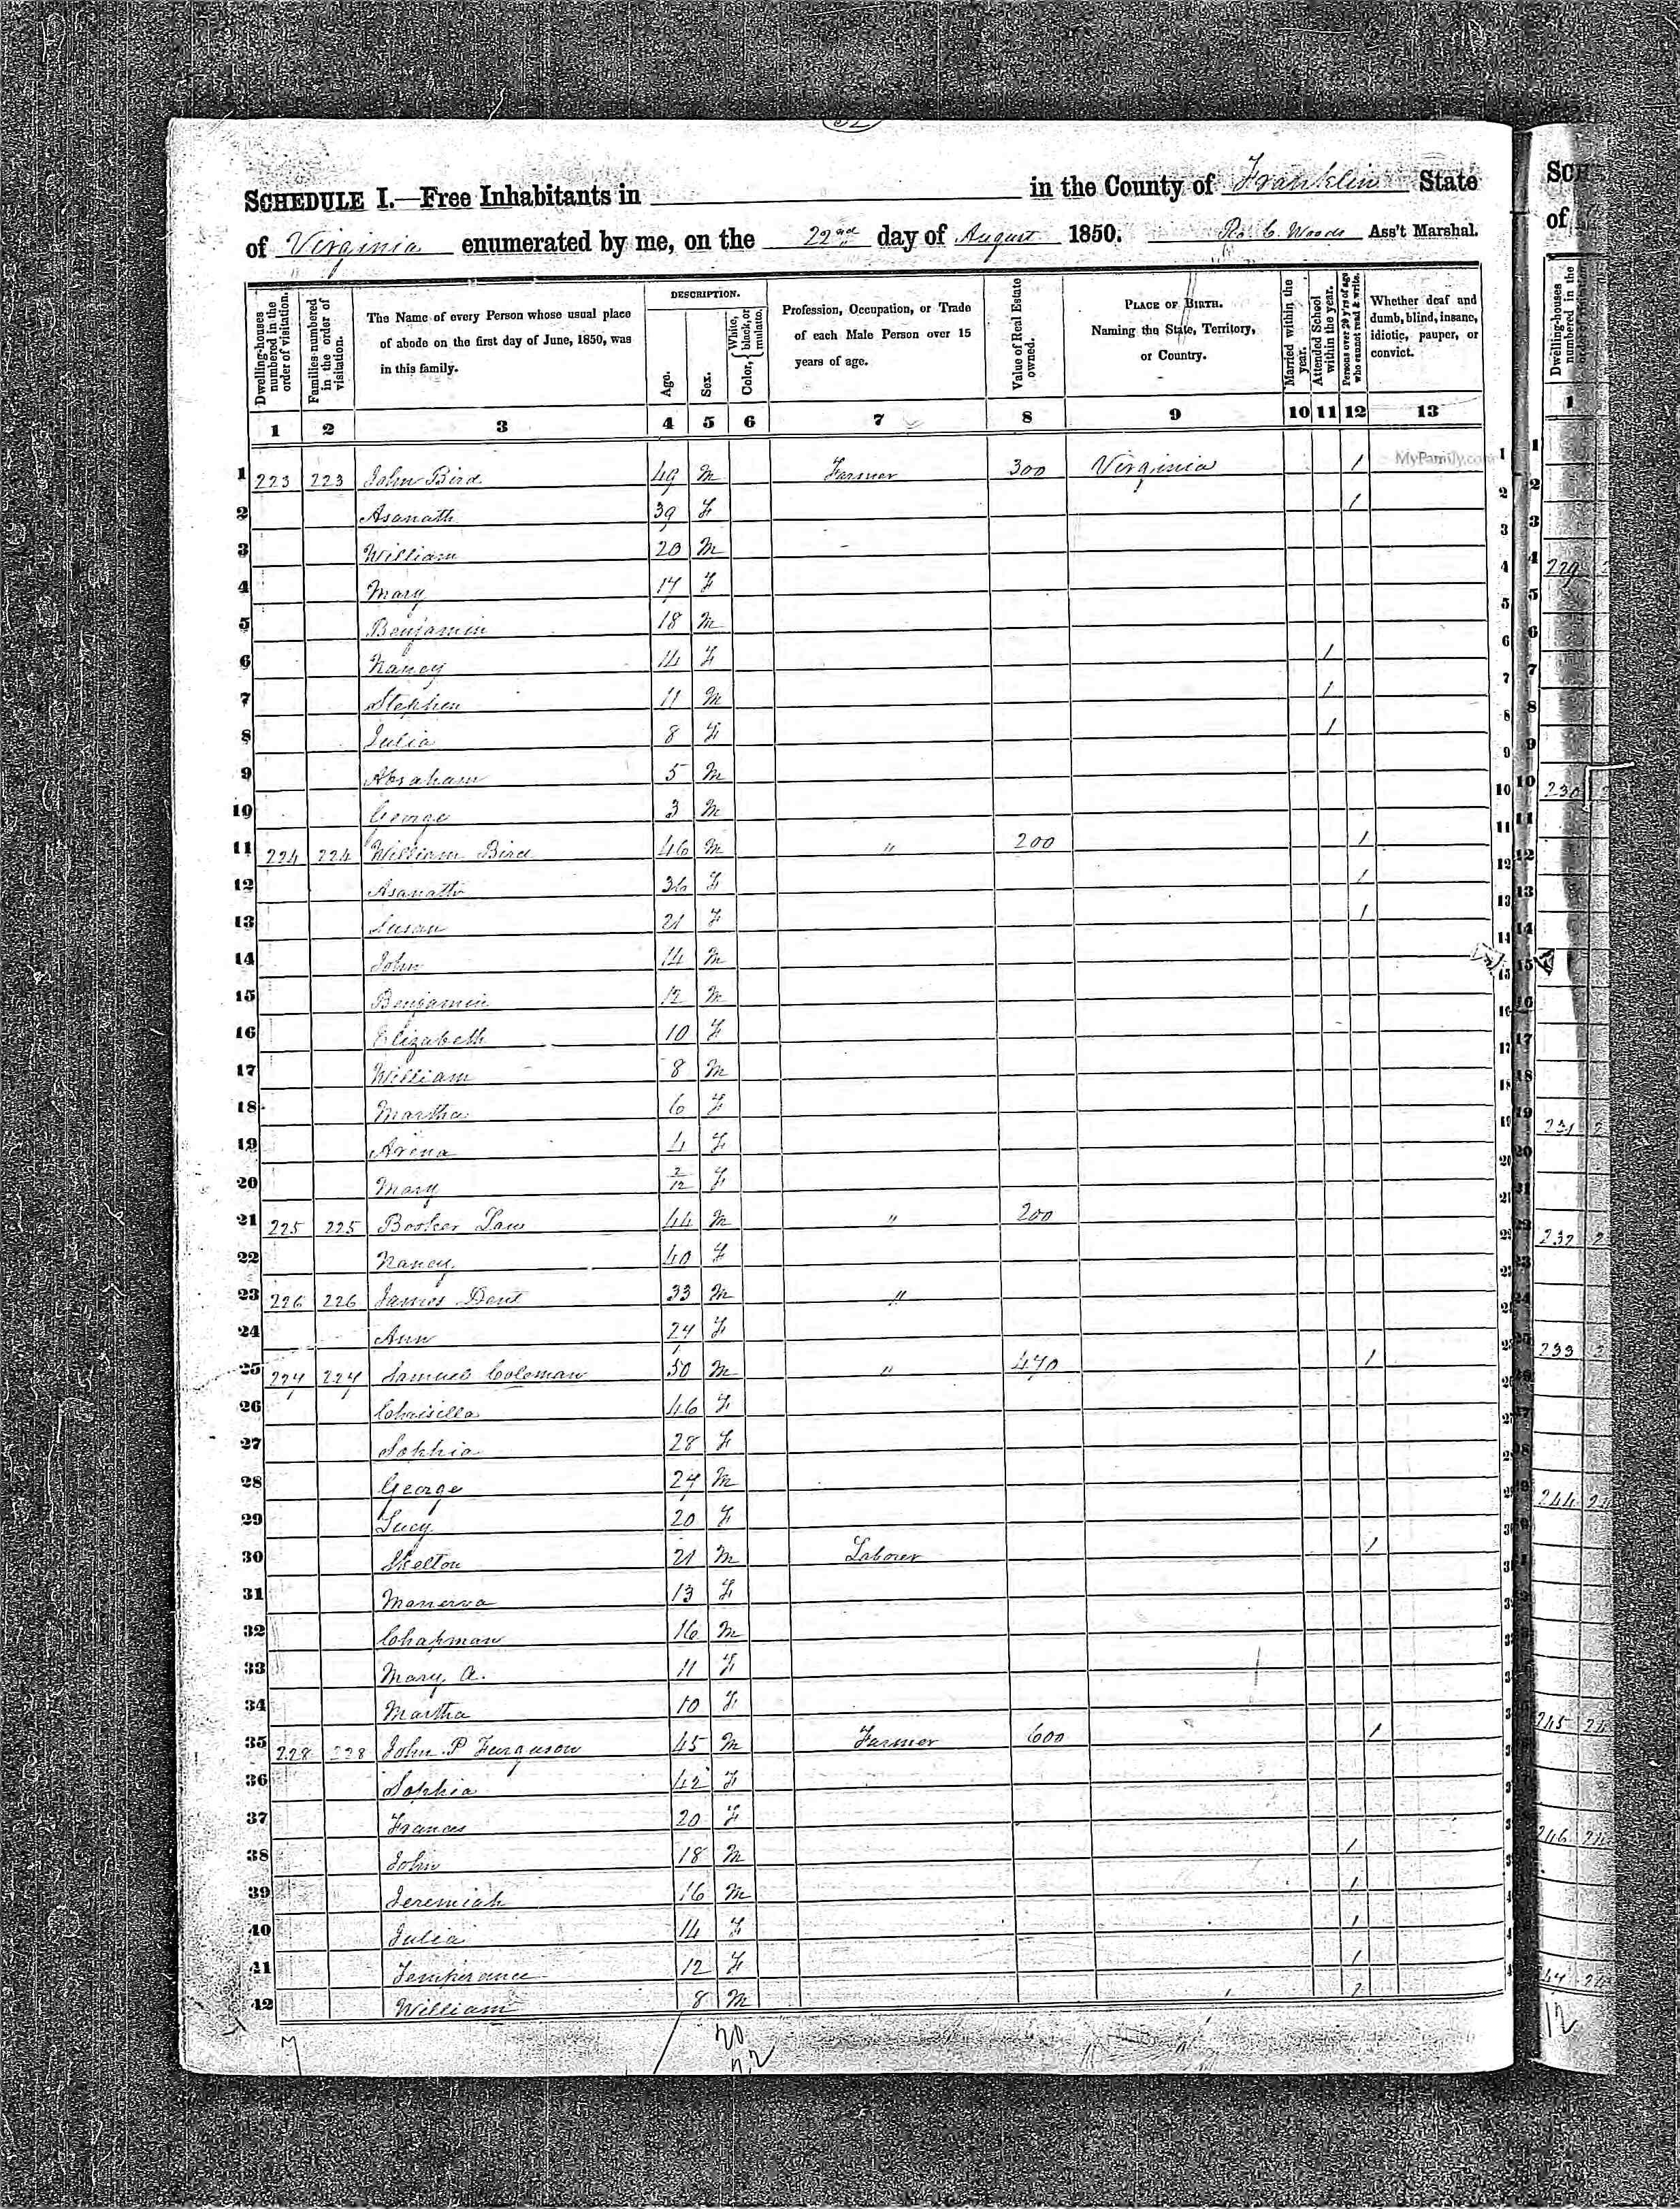 SCHEDULE I.—Free Inhabitants in in the County of Franklin State
of Virginia enumerated by me, on the 22nd day of August 1850. Ro. C. Woods Ass't Marshal.
Dwelling-houses numbered in the order of visitation.
Families numbered in the order of visitation.
The Name of every Person whose usual place of abode on the first day of June, 1850, was in this family.
DESCRIPTION.
Age.
Sex.
Color, { White, black, or mulatto.
Profession, Occupation, or Trade of each Male Person over 15 years of age.
Value of Real Estate owned.
PLACE OF BIRTH. Naming the State, Territory, or Country.
Married within the year.
Attended School within the year.
Persons over 20 y'rs of age who cannot read & write.
Whether deaf and dumb, blind, insane, idiotic, pauper, or convict.
1 2 3 4 5 6 7 8 9 10 11 12 13
MyFamily.com
1 223 223 John Bird 49 M Farmer 300 Virginia 1 1
2 Asanath 39 F 1 2
3 William 20 M 3
4 Mary 17 F 4
5 Benjamin 18 M 5
6 Nancy 14 F 1 6
7 Stephen 11 M 1 7
8 Julia 8 F 1 8
9 Abraham 5 M 9
10 George 3 M 10
11 224 224 William Bird 46 M " 200 1 11
12 Asanath 36 F 1 12
13 Susan 21 F 1 13
14 John 14 M 14
15 Benjamin 12 M 15
16 Elizabeth 10 F 16
17 William 8 M 17
18 Martha 6 F 18
19 Arena 4 F 19
20 Mary 2/12 F 20
21 225 225 Booker Law 44 M " 200 21
22 Nancy 40 F
23 226 226 James Dent 33 M "
24 Ann 27 F
25 227 227 Samuel Coleman 50 M " 470 1
26 Chrisilla 46 F
27 Sophia 28 F
28 George 27 M
29 Lucy 20 F
30 Skelton 21 M Laborer 1
31 Manerva 13 F
32 Chapman 16 M
33 Mary A. 11 F
34 Martha 10 F
35 228 228 John P Furguson 45 M Farmer 600 1
36 Sophia 42 F
37 Frances 20 F
38 John 18 M 1
39 Jeremiah 16 M 1
40 Julia 14 F 1
41 Temperance 12 F 1
42 William 8 M
20
22
SCH
of
Dwelling-houses numbered in the
1
229
230
231
232
233
244
245
246
12